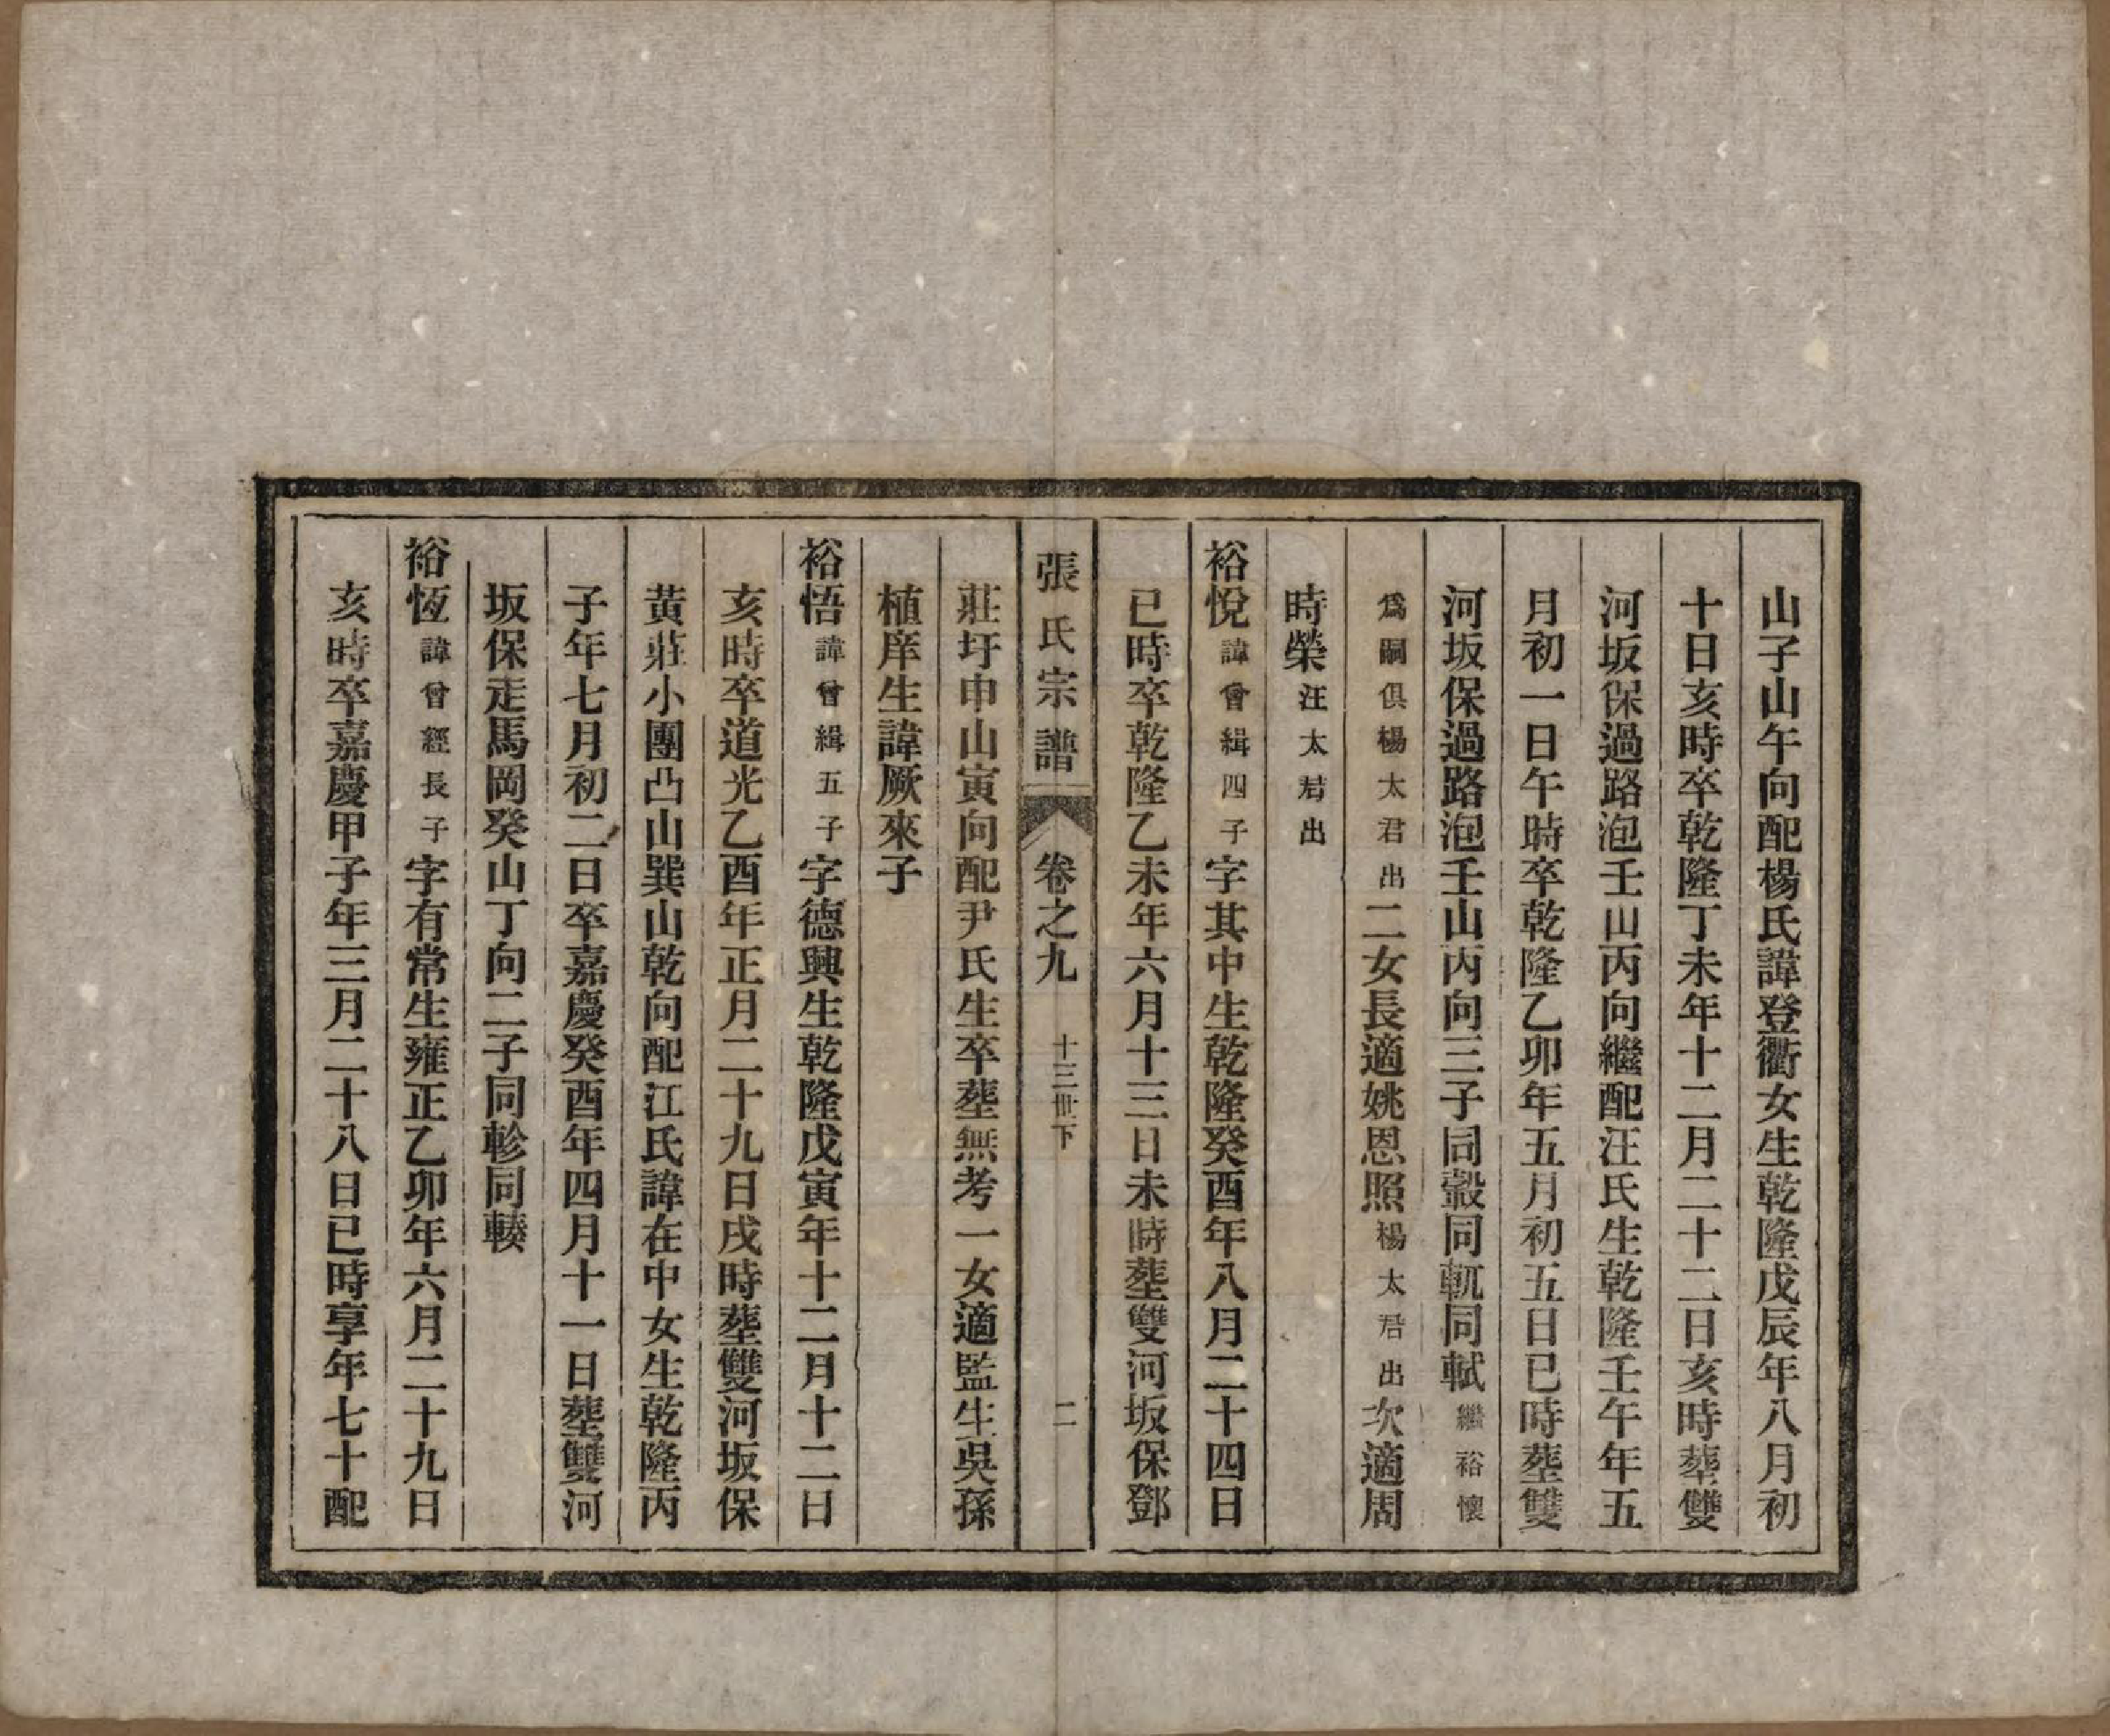 山子山午向配楊氏諱登衢女生乾隆戊辰年八月初
十日亥時卒乾隆丁未年十二月二十二日亥時葬雙
河坂保過路泡壬山丙向繼配汪氏生乾隆壬午年五
月初一日午時卒乾隆乙卯年五月初五日巳時葬雙
河坂保過路泡壬山丙向三子同轂同軏同軾繼裕懷
爲嗣俱楊太君出二女長適姚恩照楊太君出次適周
時榮汪太君出
裕悅諱曾緝四子字其中生乾隆癸酉年八月二十四日
巳時卒乾隆乙未年六月十三日未時葬雙河坂保鄧
張氏宗譜 卷之九 十三世下 二
莊圩申山寅向配尹氏生卒葬無考一女適監生吳孫
植庠生諱厥來子
裕悟諱曾緝五子字德興生乾隆戊寅年十二月十二日
亥時卒道光乙酉年正月二十九日戌時葬雙河坂保
黃莊小團凸山巽山乾向配江氏諱在中女生乾隆丙
子年七月初二日卒嘉慶癸酉年四月十一日葬雙河
坂保走馬岡癸山丁向二子同軫同轅
裕恆諱曾經長子字有常生雍正乙卯年六月二十九日
亥時卒嘉慶甲子年三月二十八日巳時享年七十配